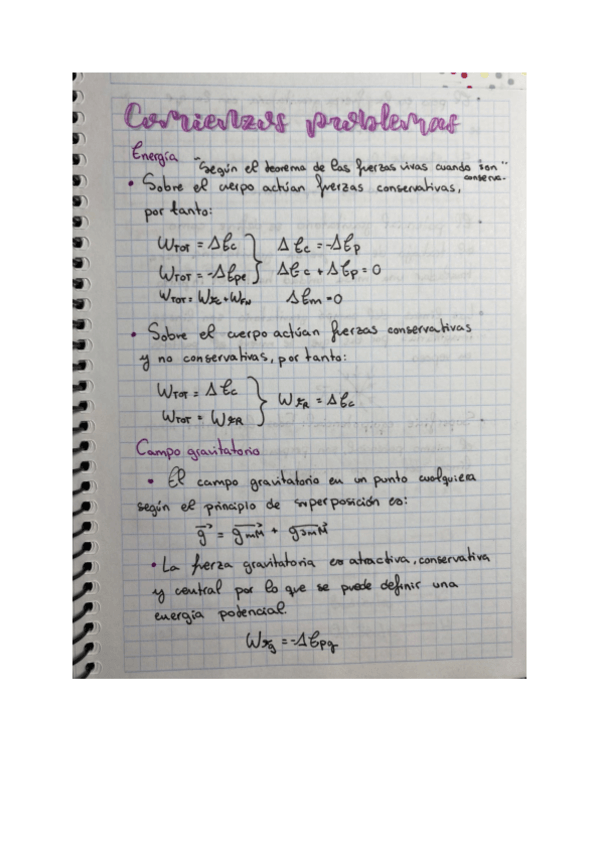 Comienzos problemas
Energía
"Según el teorema de las fuerzas vivas cuando son"
conserva.
• Sobre el cuerpo actúan fuerzas conservativas,
por tanto:
WTOT = ΔEc } ΔEc = -ΔEp
WTOT = -ΔEpe } ΔEc + ΔEp = 0
ΔEm = 0
• Sobre el cuerpo actúan fuerzas conservativas
y no conservativas, por tanto:
WTOT = ΔEc } WFR = ΔEc
WTOT = WFR
Campo gravitatorio
• El campo gravitatorio en un punto cualquiera
según el principio de superposición es:
g⃗ = g⃗mM + g⃗2mM
• La fuerza gravitatoria es atractiva, conservativa
y central por lo que se puede definir una
energía potencial.
WFg = -ΔEpg